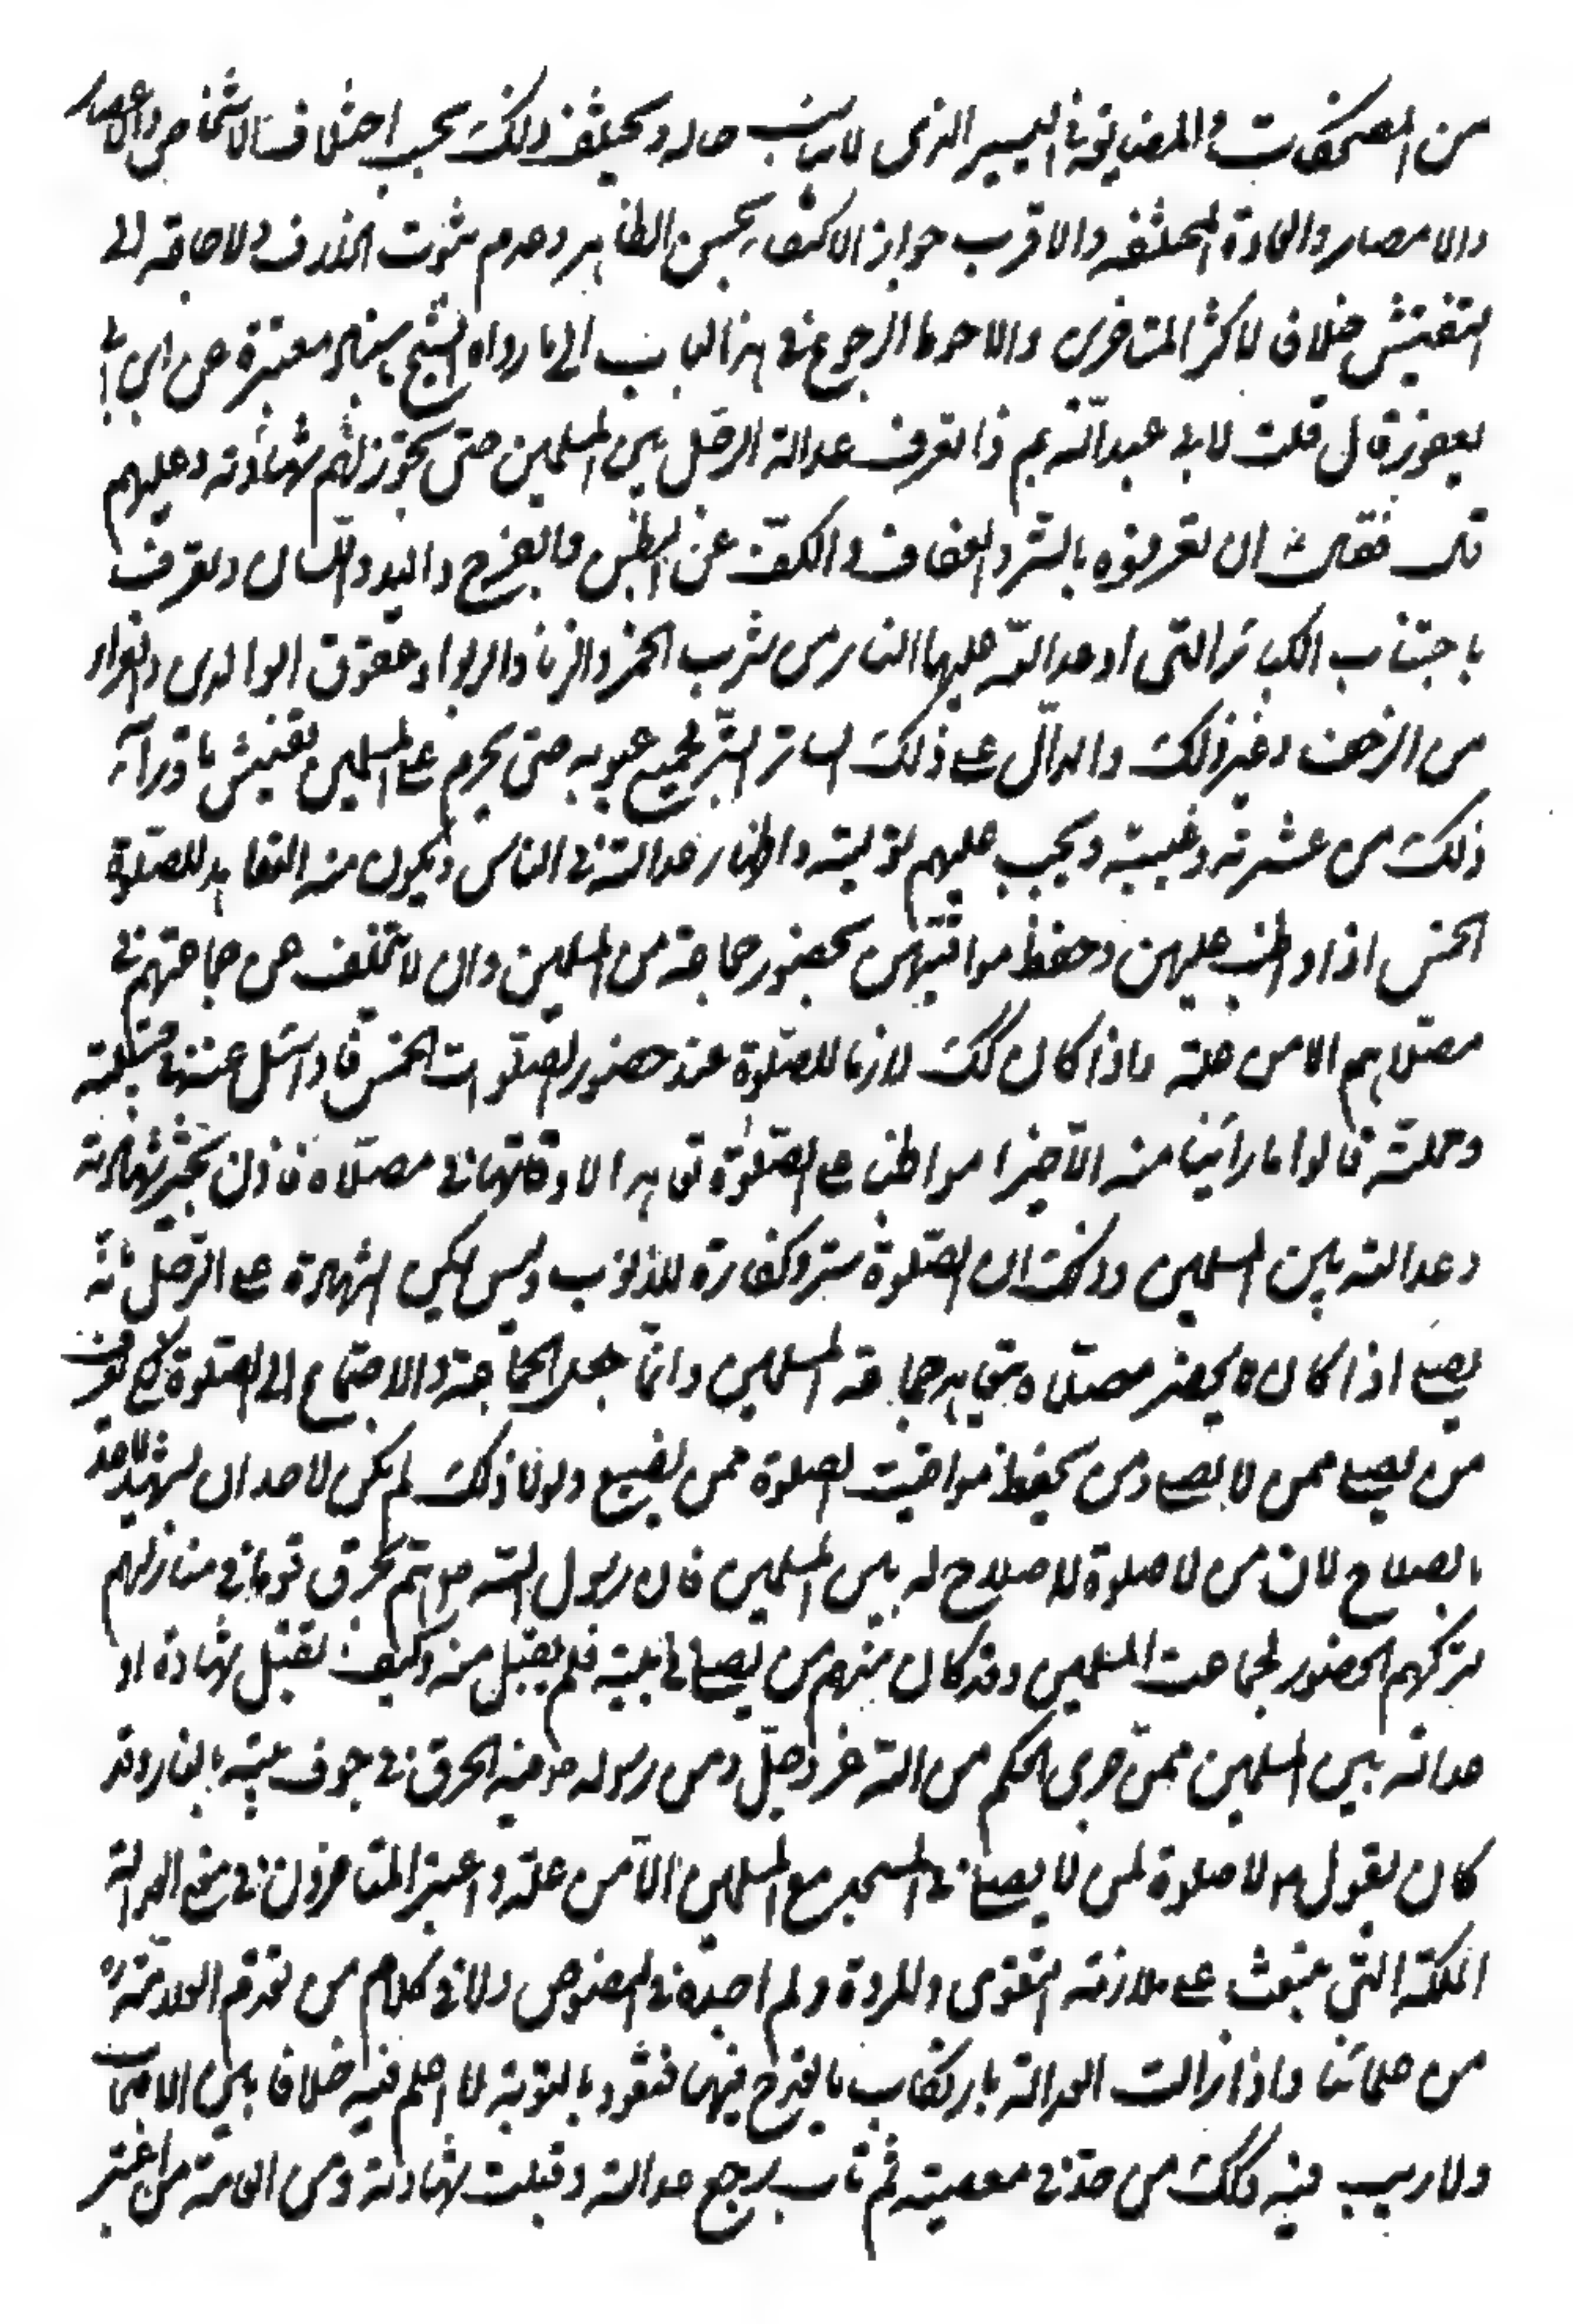 من المضحكات والمضايقة في اليسير الذي لا يناسب حاله ويختلف ذلك بحسب اختلاف الاشخاص والاعصار
والامصار والعادة المختلفه والاقرب جواز الاكتفاء بحسن الظاهر وعدم ثبوت الخلاف ولا حاجة الى
التفتيش خلافا لاكثر المتاخرين والاحوط الرجوع في هذا الباب الى ما رواه الشيخ باسناد معتبرة عن ابن ابي
يعفور قال قلت لابي عبد الله بم ذا تعرف عدالة الرجل بين المسلمين حتى تجوز لهم شهادته وعليهم
قال فقال ان تعرفوه بالستر والعفاف والكف عن البطن والفرج واليد واللسان وتعرف
باجتناب الكبائر التي اوعد الله عليها النار من شرب الخمر والزنا والربوا وعقوق الوالدين والفرار
من الزحف وغير ذلك والدال على ذلك الساتر لجميع عيوبه حتى يحرم على المسلمين تفتيش ما وراء
ذلك من عثرته وغيبته ويجب عليهم توليته واظهار عدالته في الناس ويكون منه التعاهد للصلوة
الخمس اذا واظب عليهن وحفظ مواقيتهن بحضور جماعة من المسلمين وان لا يتخلف عن جماعتهم في
مصلاهم الا من علة واذا كان كك لازما للصلوة عند حضور الصلوات الخمس فاذا سئل عنه في قبيلته
ومحلته قالوا ما راينا منه الا خيرا مواظبا على الصلوة متعاهدا لاوقاتها في مصلاه فاذن تجيز شهادته
وعدالته بين المسلمين وذلك ان الصلوة ستر وكفارة للذنوب وليس يمكن الشهادة على الرجل بانه
يصلى اذا كان لا يحضر مصلاه ويتعاهد جماعة المسلمين وانما جعل الجماعة والاجتماع الى الصلوة لكي يعرف
من يصلى ممن لا يصلى ومن يحفظ مواقيت الصلوة ممن يضيع ولولا ذلك لم يكن لاحد ان يشهد لاحد
بالصلاح لان من لا صلوة لا صلاح له بين المسلمين فان رسول الله ص هم بحرق قوما في منازلهم
بتركهم الحضور لجماعت المسلمين وقد كان منهم من يصلى في بيته فلم يقبل منه وكيف تقبل شهادة او
عدالة بين المسلمين ممن جرى الحكم من الله عز وجل ومن رسوله ص فيه الحرق في جوف بيته بالنار وقد
كان يقول ص لا صلوة لمن لا يصلى في المسجد مع المسلمين الا من علة واعتبر المتاخرون في معنى العدالة
الملكة التي تبعث على ملازمة التقوى والمروة ولم اجده في النصوص ولا في كلام من تقدم العلامة ره
من علمائنا واذا زالت العدالة بارتكاب ما يقدح فيها فتعود بالتوبة لا اعلم فيه خلافا بين الاصحاب
ولا ريب فيه وكك من حد في معصية ثم تاب يرجع عدالته وقبلت شهادته ومن العامة من اعتبر